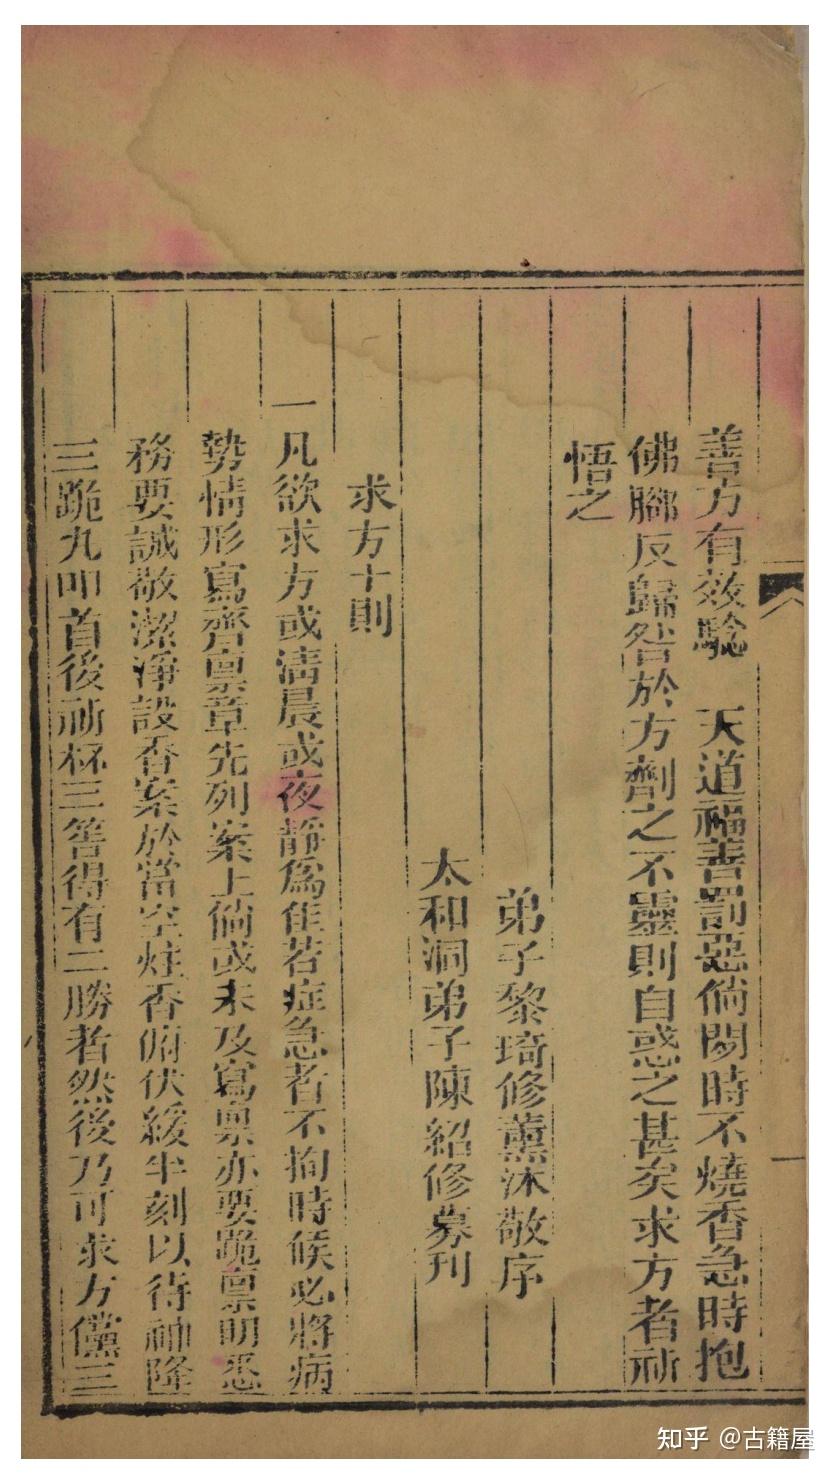 善方有效驗　天道福善罰惡倘閒時不燒香急時抱
佛腳反歸咎於方劑之不靈則自惑之甚矣求方者祈
悟之
弟子黎琦修薰沐敬序
太和洞弟子陳紹修募刊
求方十則
一凡欲求方或清晨或夜靜爲佳若症急者不拘時候必將病
勢情形寫齊禀章先列案上倘或未及寫禀亦要跪禀明悉
務要誠敬潔淨設香案於當空炷香俯伏緩半刻以待神降
三跪九叩首後祈杯三筶得有二勝者然後乃可求方儻三
一
知乎 @古籍屋